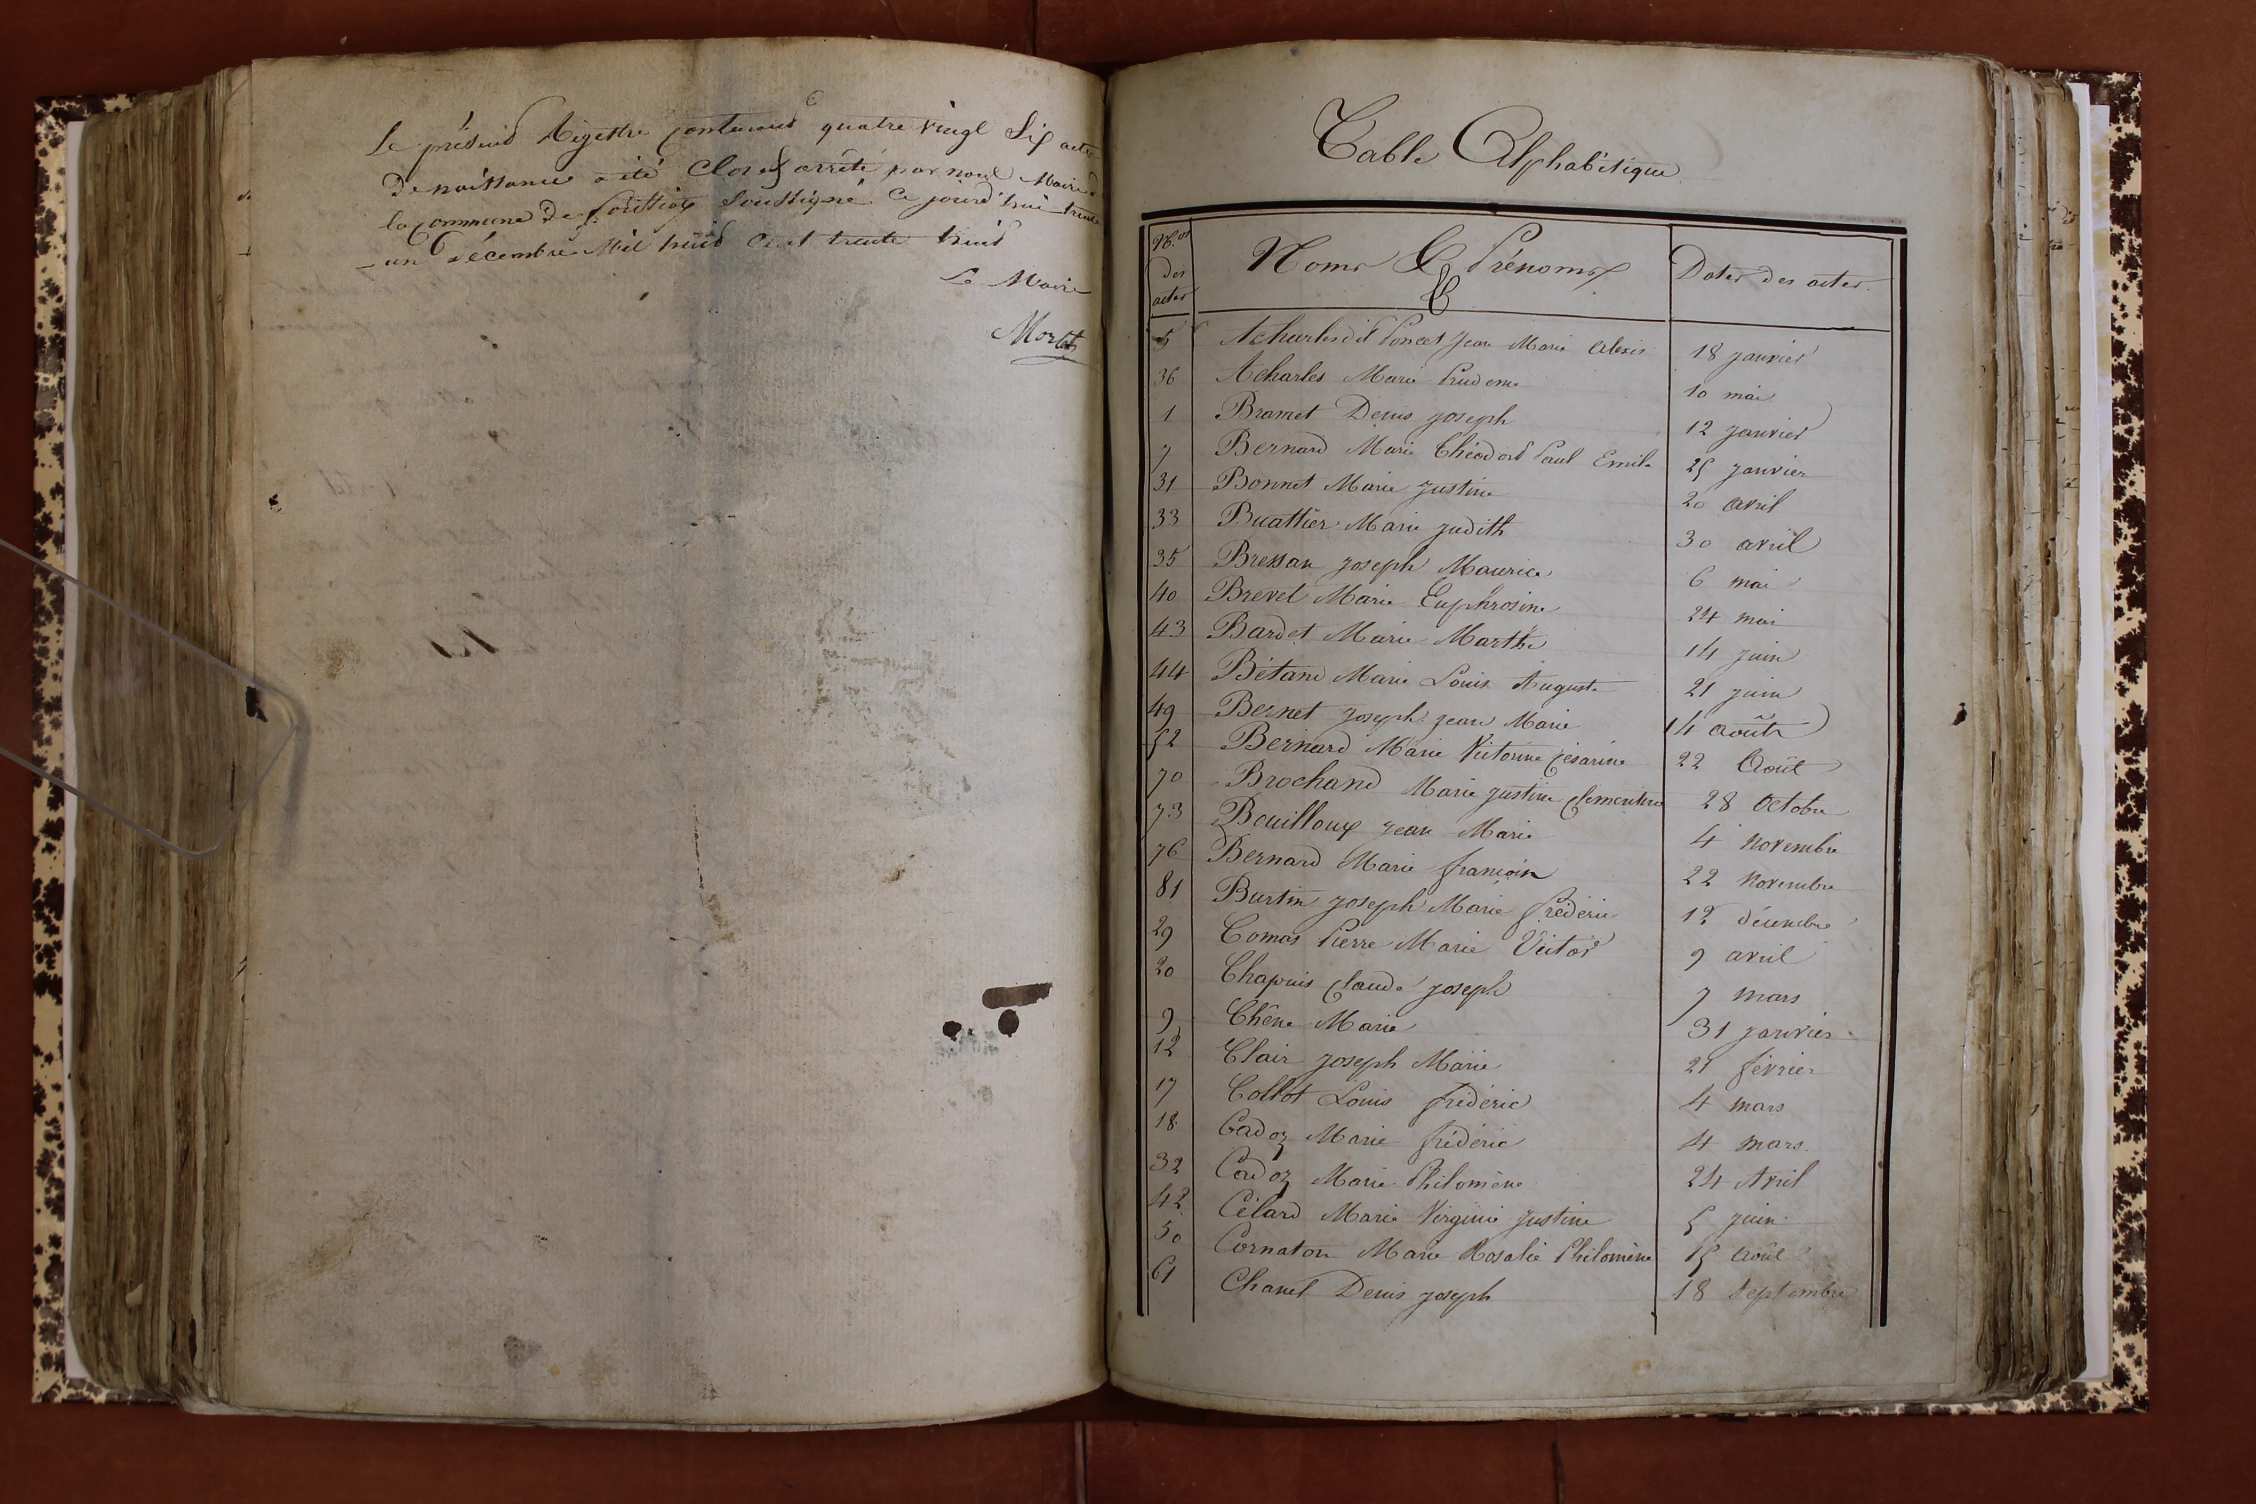 Le présent Régistre contenant quatre vingt Six actes
De naissance a été Clos et arrêté par nous Maire d
la commune de soussigné Ce jourd'hui trente
un Décembre Mil huit Cent trente huit
Le Maire
Table Alphabétique
N.os des actes Noms & Prénoms Dates des actes.
5 Acharles dit Poncet Jean Marie Alexis 18 janvier
36 Acharles Marie Prudence 10 mai
1 Bramet Denis joseph 12 janvier
7 Bernard Marie Théodore Paul Emile 25 janvier
31 Bonnet Marie justine 20 avril
33 Buathier Marie judith 30 avril
35 Bressan joseph Maurice 6 mai
40 Brevet Marie Euphrosine 24 mai
43 Bardet Marie Marthe 14 juin
44 Bétand Marie Louis Auguste 21 juin
49 Bernet joseph jean Marie 14 août
52 Bernard Marie Victorine Césarine 22 Août
70 Brochand Marie justine Clementine 28 Octobre
73 Bouilloux jean Marie 4 Novembre
76 Bernard Marie françois 22 Novembre
81 Burtin joseph Marie frédéric 12 décembre
29 Comas Pierre Marie Victor 9 avril
20 Chapuis Claude joseph 7 mars
9 Chêne Marie 31 janvier
12 Clair joseph Marie 21 février
17 Collot Louis frédéric 4 mars
18 Cadoz Marie frédéric 4 mars
32 Cadoz Marie Philomène 24 Avril
42 Célard Marie Virginie justine 5 juin
50 Cornaton Marie Rosalie Philomène 15 Août
61 Chanel Denis joseph 18 Septembre